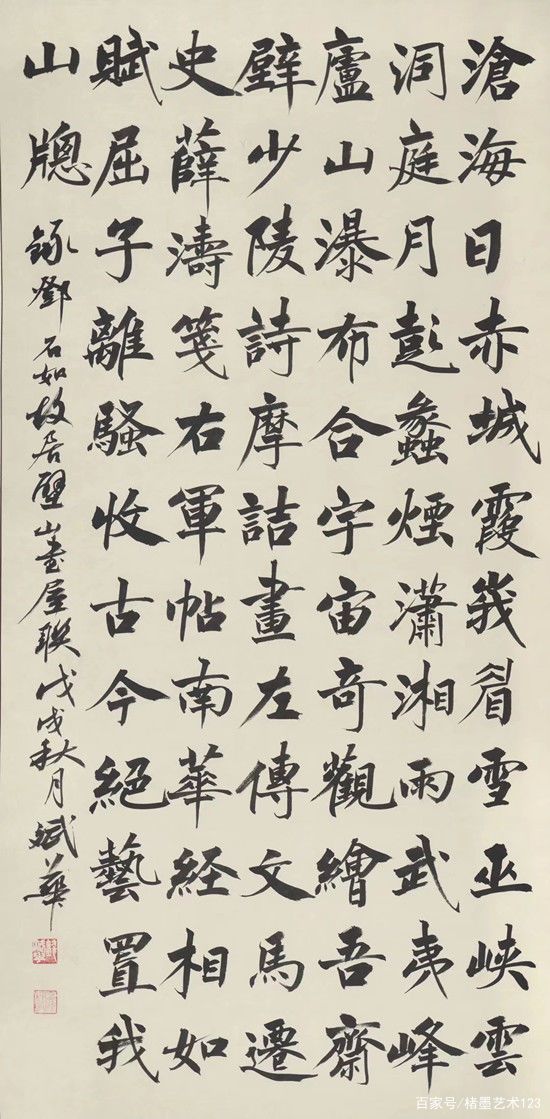 滄海日赤城霞峩眉雪巫峽雲
洞庭月彭蠡煙瀟湘雨武夷峰
廬山瀑布合宇宙奇觀繪吾齋
壁少陵詩摩詰畫左傳文馬遷
史薛濤箋右軍帖南華経相如
賦屈子離騷收古今絕藝置我
山牕
錄鄧石如故居碧山書屋联戊戌秋月斌華
百家号/楮墨艺术123